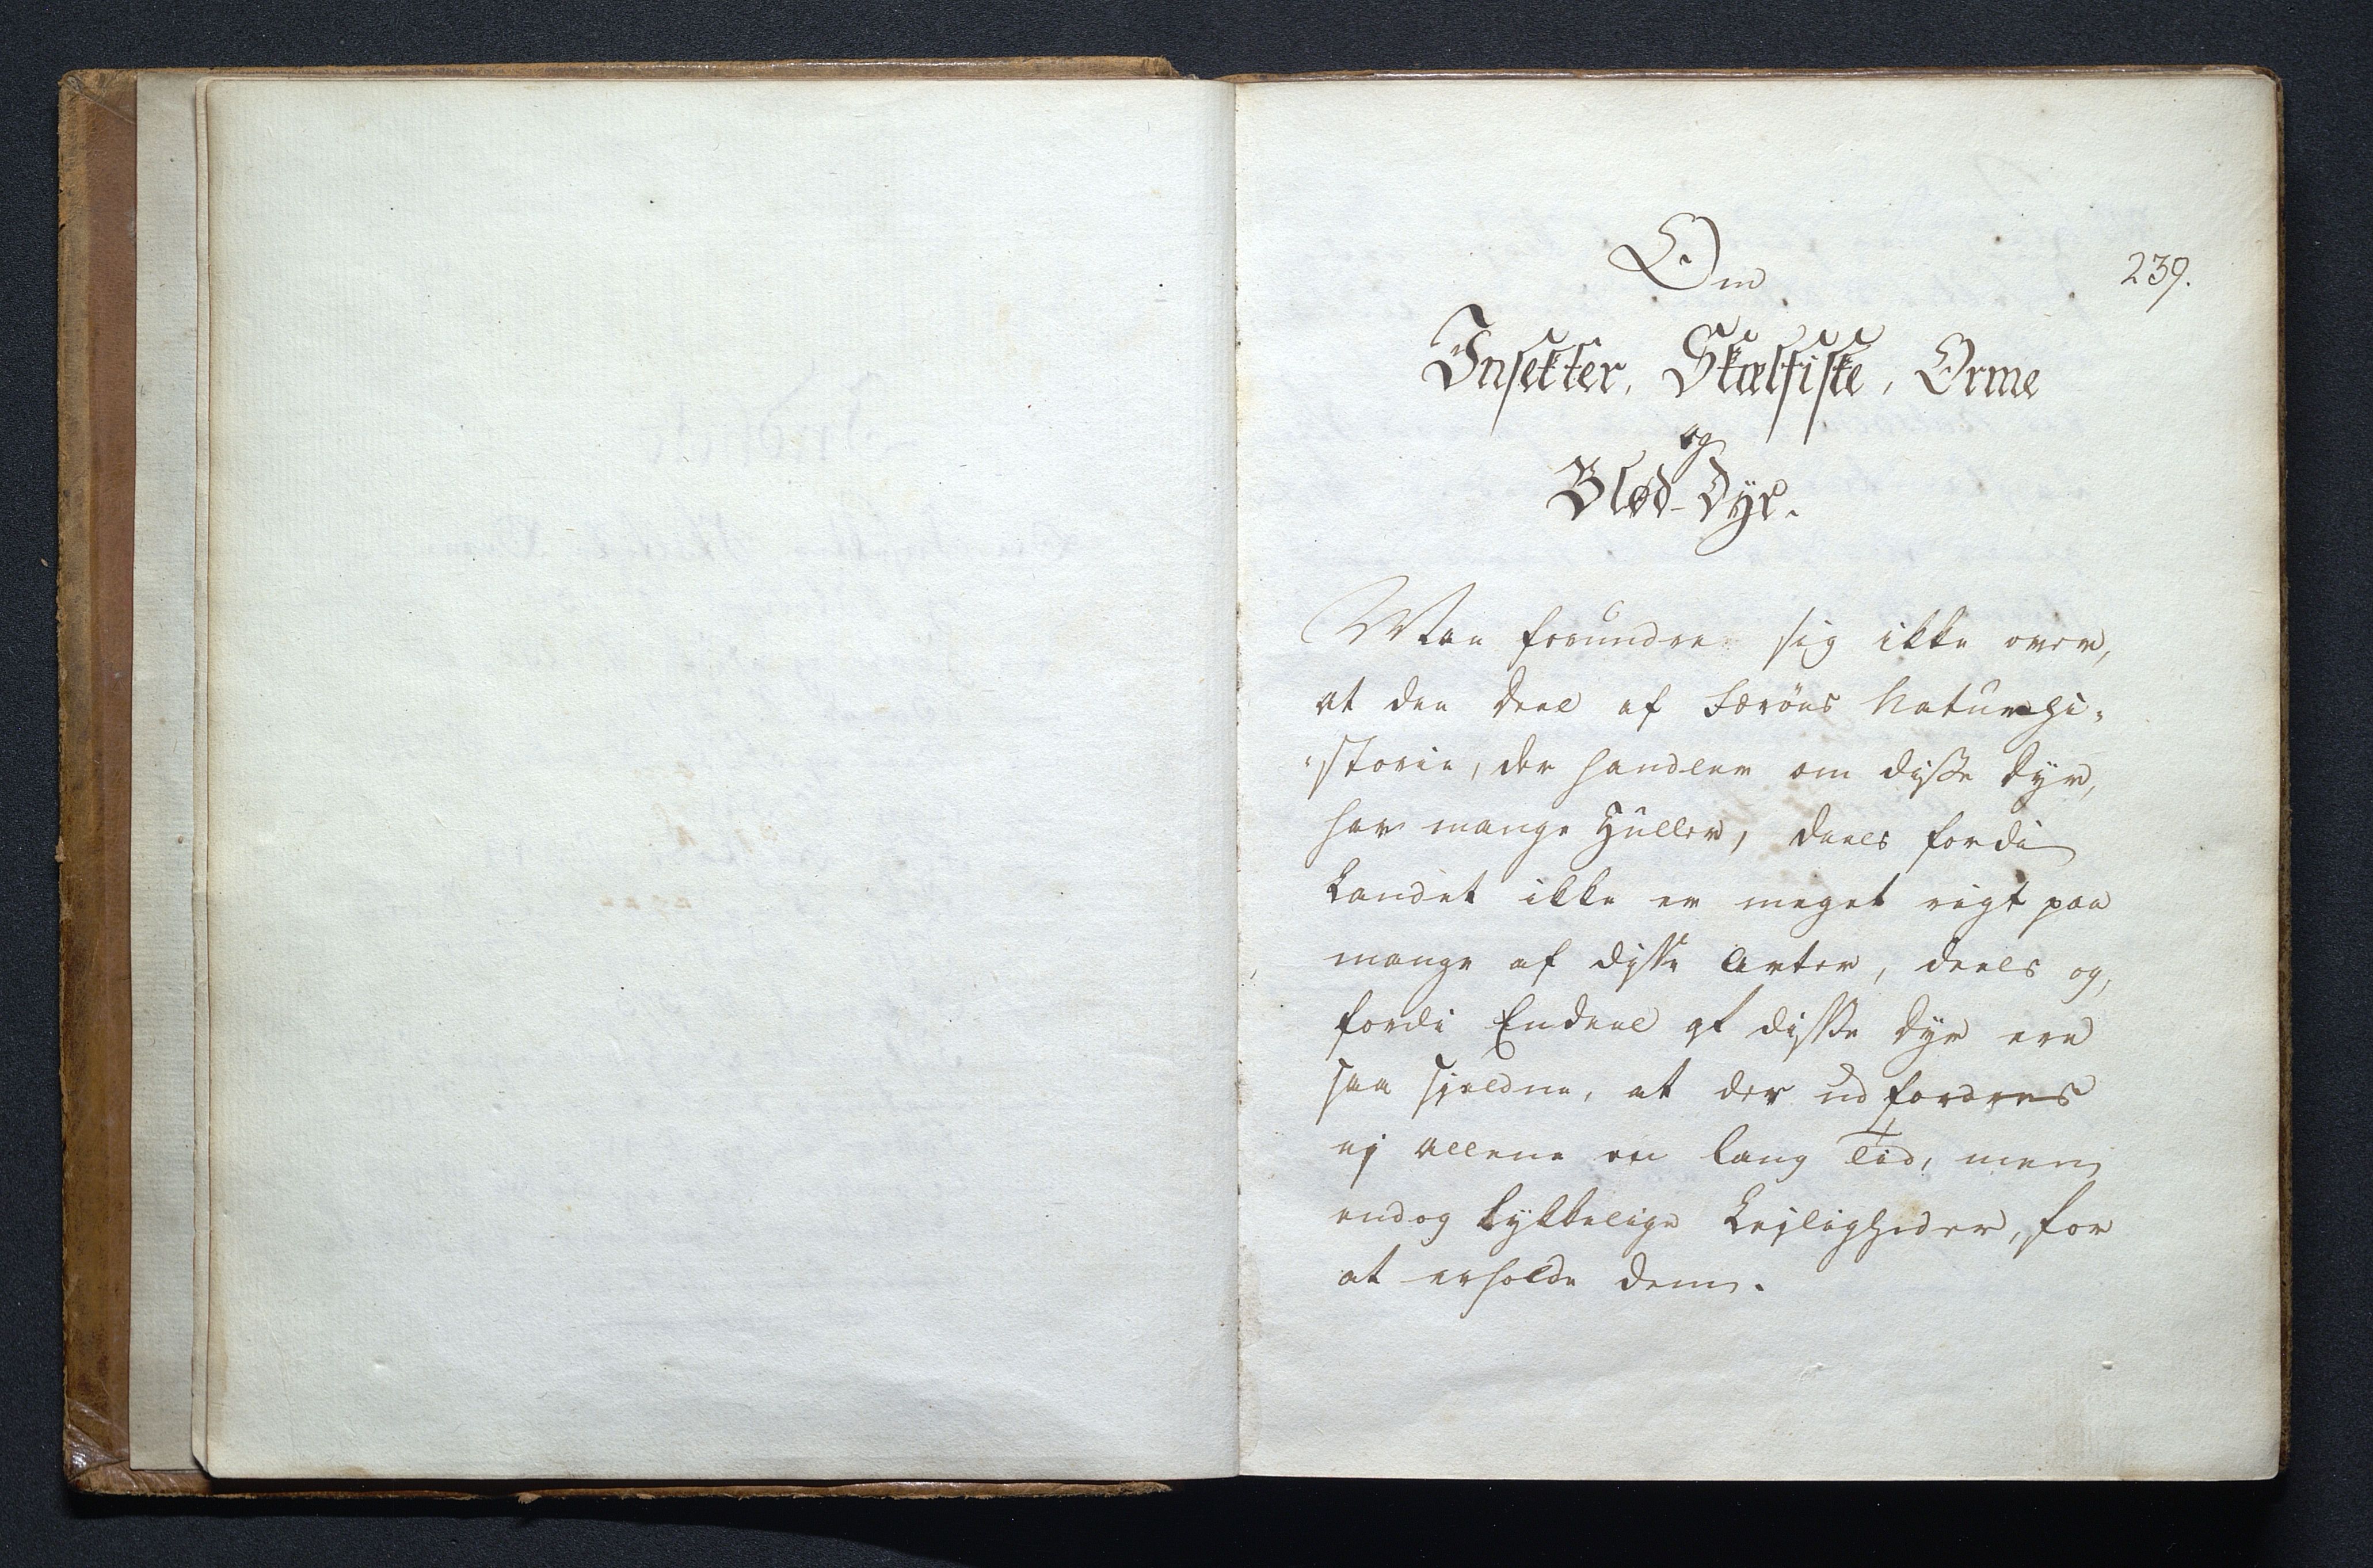 239.
Om
Insekter, Skælfiske, Orme
og
Blød-Dÿr.
Man forundre sig ikke over,
at den Deel af Færöes Naturhi-
storie, der handler om disse Dÿr,
har mange Huller, deels fordi
Landet ikke er meget rigt paa
mange af disse Arter, deels og,
fordi Endeel af disse Dÿr ere
saa sjeldne, at der udfordres
ej allene en lang Tid, men
endog lykkelige Lejligheder, for
at erholde dem.